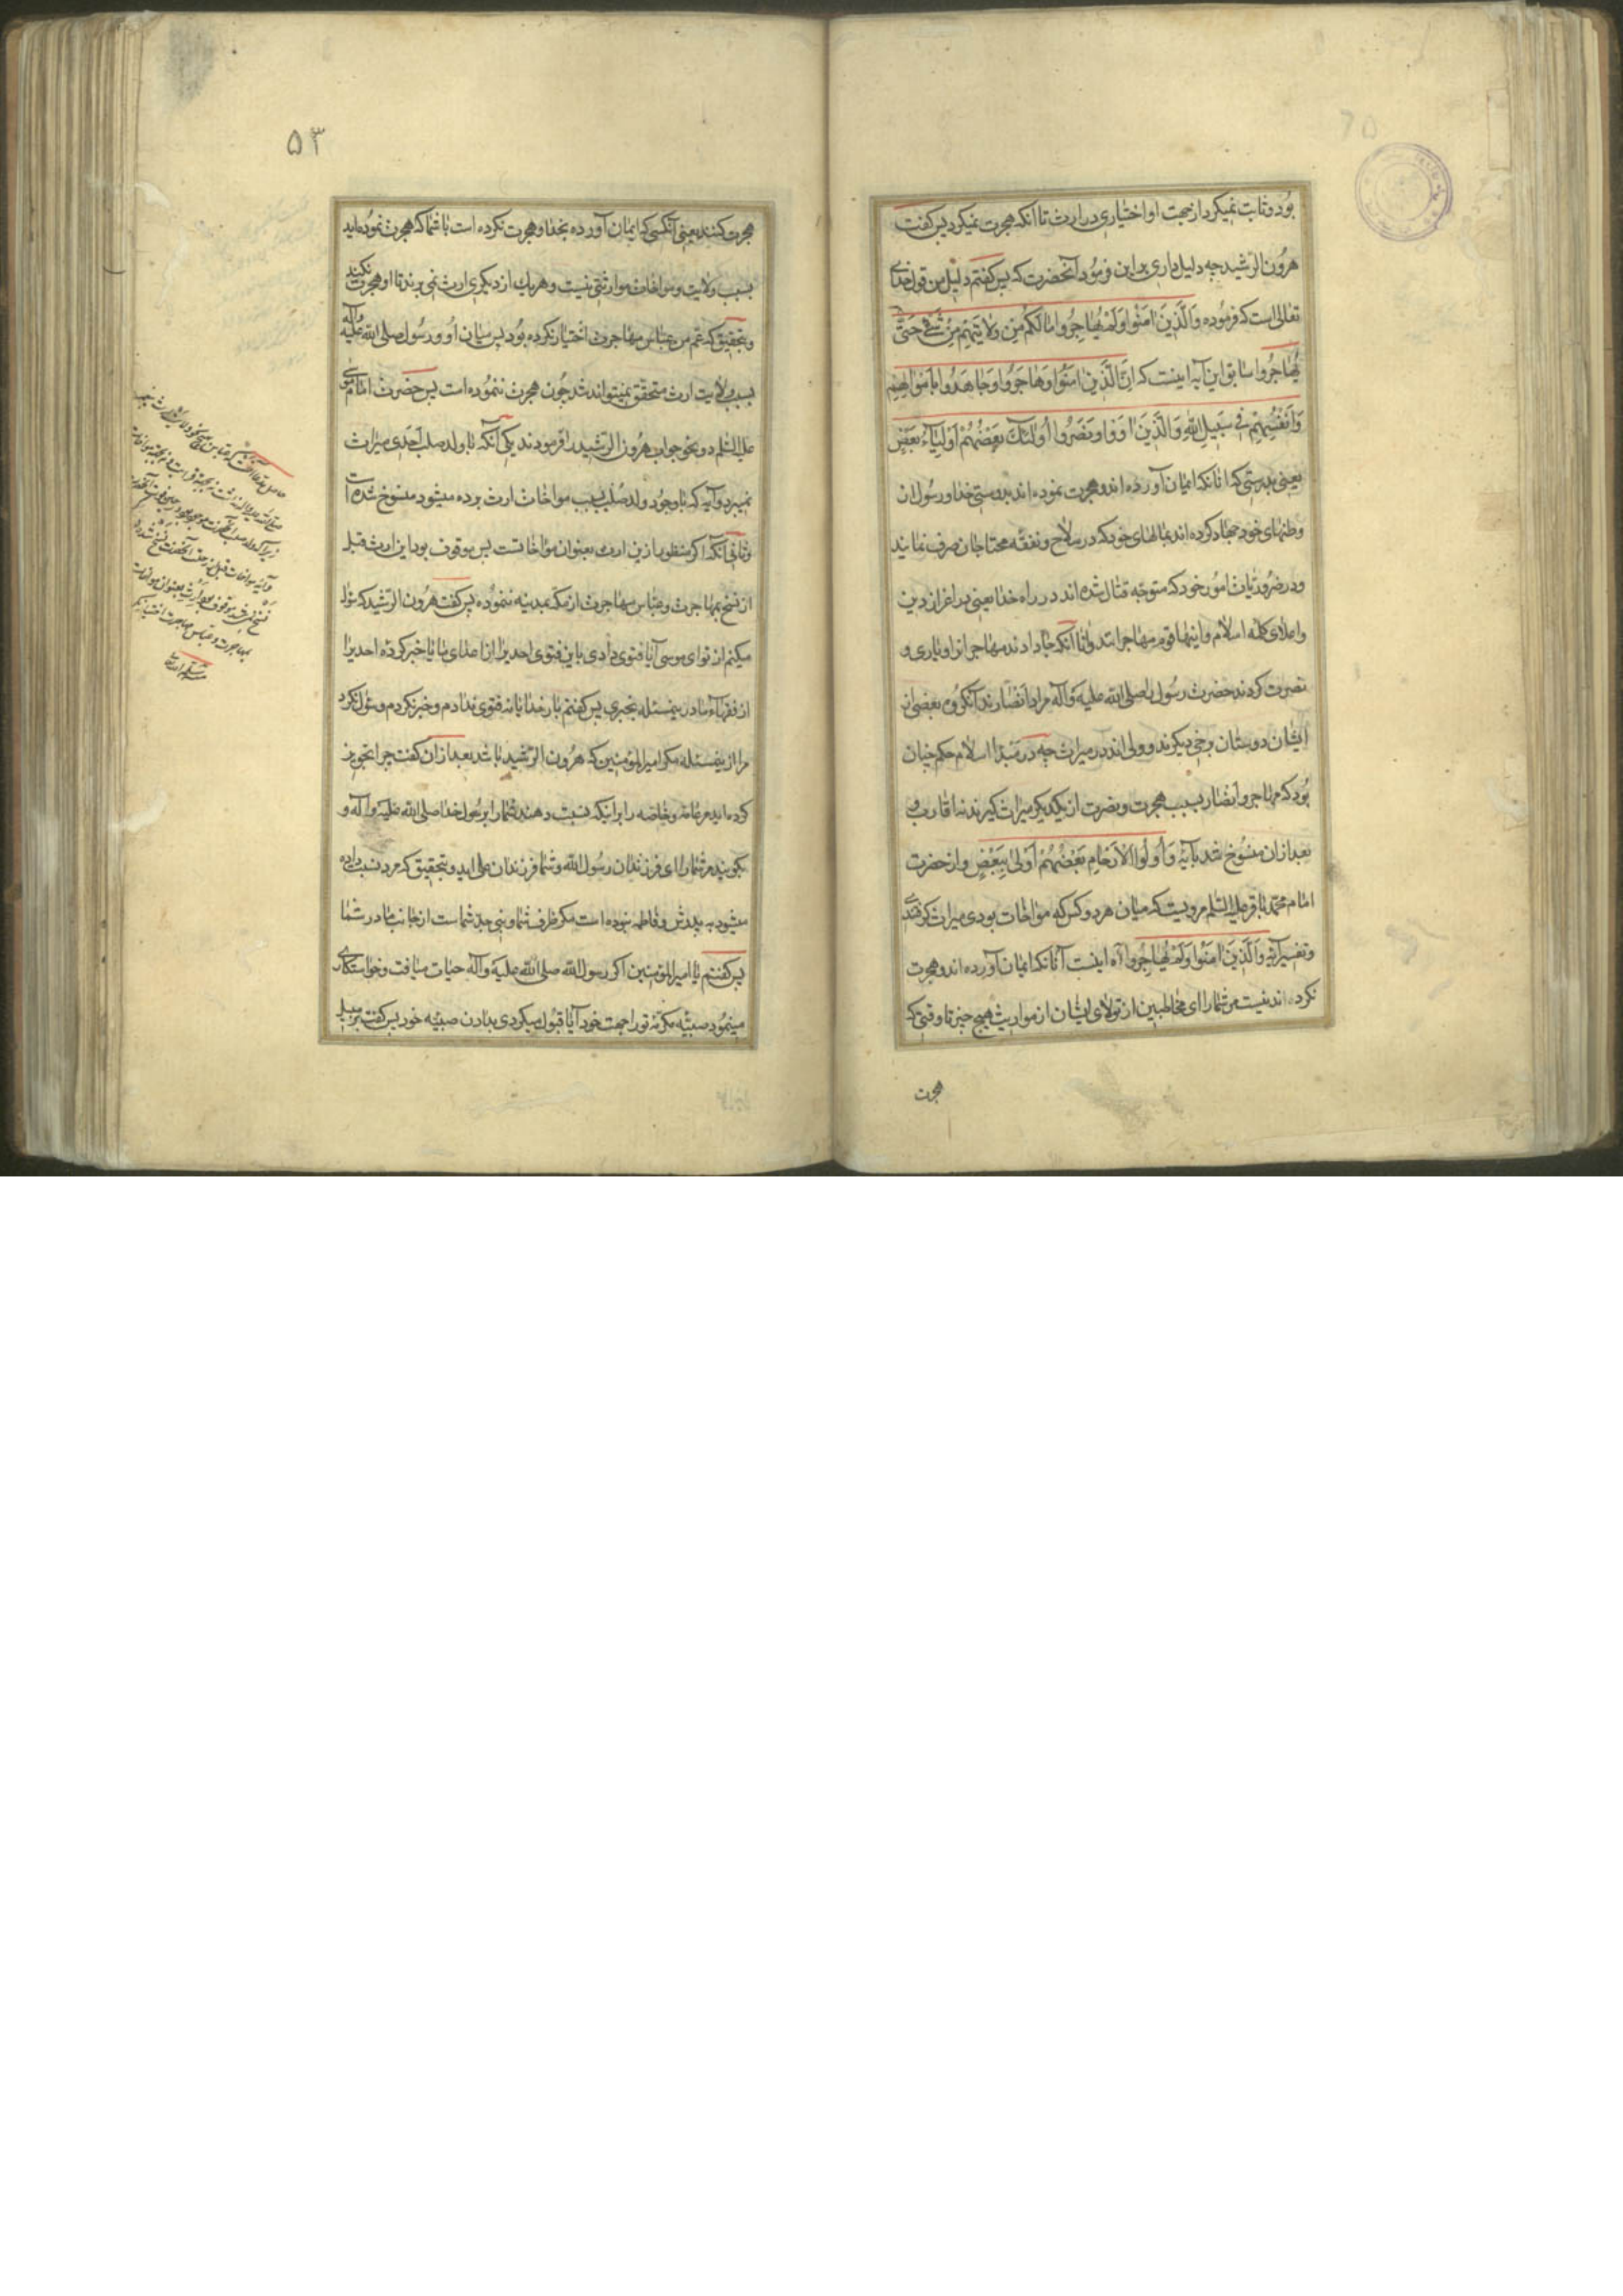 بود و ثابت نمیکرد از جهت او اختیاری در ارث تا انکه هجرت نمیکرد پس کفت
هرون الرشید چه دلیل داری بر این فرموده آنحضرت که پس کفتم دلیل من قول خدای
تعالی است که فرموده والذین امنوا ولم یهاجروا مالکم من ولایتهم من شیء حتی
یهاجروا سابق این آیه اینست که ان الذین امنوا وهاجروا وجاهدوا باموالهم
وانفسهم فی سبیل الله والذین اووا ونصروا اولئک بعضهم اولیاء بعض
یعنی بدرستی که انانکه ایمان آورده اند و هجرت نموده اند بدوستی خدا و رسول از
وطنهای خود و جهاد کرده اند بمالهای خود که در سلاح و نفقه محتاجان صرف نمایند
و در ضروریات امور خود که متوجه قتال شده اند در راه خدا یعنی بر اعزاز دین
و اعلای کلمه اسلام و اینها قوم مهاجر اند و انا انکه جا دادند مهاجر انرا و یاری و
نصرت کردند حضرت رسول را صلی الله علیه و آله مراد انصارند آنکروه بعضی از
ایشان دوستان برخی دیکرند و ولی اند در میراث چه در مبدا اسلام حکم چنان
بود که مهاجر و انصار بسبب هجرت و نصرت از یکدیکر میراث کیرند نه اقارب و
بعد از ان منسوخ شد بآیه و اولوا الارحام بعضهم اولی ببعض و از حضرت
امام محمد باقر علیه السلم مرویست که میان هر دو کس که مواخات بودی میراث کرفتندی
و تفسیر آیه والذین امنوا ولم یهاجروا آه اینست آنانکه ایمان آورده اند و هجرت
نکرده اند نیست مر شما را ای مخاطبین از تولای ایشان از مواریث هیچ چیز تا وقتی که
هجرت
۵۳
هجرت کنند یعنی آنکسی که ایمان آورده بخدا و هجرت نکرده است با شما که هجرت نموده اید
بسبب ولایت و مواخات موارثتی نیست و هر یک از دیکری ارث نمی برند تا او هجرت نکند
و بتحقیق که عم من عباس مهاجرت اختیار نکرده بود پس میان او و رسول صلی الله علیه واله
بسبب ولایت ارث متحقق نمیتواند شد چون هجرت ننموده است پس حضرت امام موسی
علیه السلم دو نحو جواب هرون الرشید را فرمودند یکی آنکه با ولد صلب احدی میراث
نمیبرد و آیه که با وجود ولد صلب بسبب مواخات ارث برده میشود منسوخ شده است
و ثانی آنکه اکر منظور ازین ارث بعنوان مواخاتست پس موقوف بود این ارث قبل
از نسخ بمهاجرت و عباس مهاجرت از مکه بمدینه ننموده پس کفت هرون الرشید که سوال
میکنم از تو ای موسی آیا فتوی دادی باین فتوی احدیرا از اعدای ما یا خبر کرده احدیرا
از فقهاء ما درین مسئله بخبری پس کفتم بار خدایا نه فتوی ندادم و خبر نکردم و سئول نکرد
مرا از ینمسئله مکر امیر المؤمنین که هرون الرشید باشد بعد از ان کفت چرا تجویز
کرده اید مر عامه و خاصه را برانیکه نسبت دهند شما را برسول خدا صلی الله علیه و آله و
بکویند مر شما را ای فرزندان رسول الله و شما فرزندان علی اید و بتحقیق که مرد نسبت داده
میشود به پدرش و فاطمه نبوده است مکر ظرف شما و نبی جد شما است از جانب مادر شما
پس کفتم یا امیر المؤمنین اکر رسول الله صلی الله علیه و آله حیات میافت و خواستکاری
مینمود صبیه مکرمه تو را جهت خود آیا قبول میکردی بدادن صبیه خود پس کفت بر سبیل